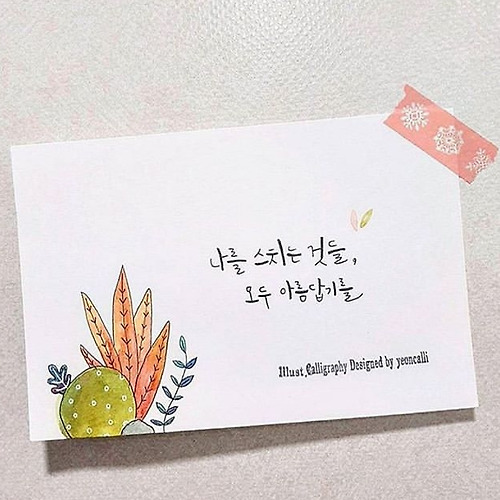 나를 스치는 것들,
오두 아름답기를
Illust,Calligraphy Designed by yeoncalli